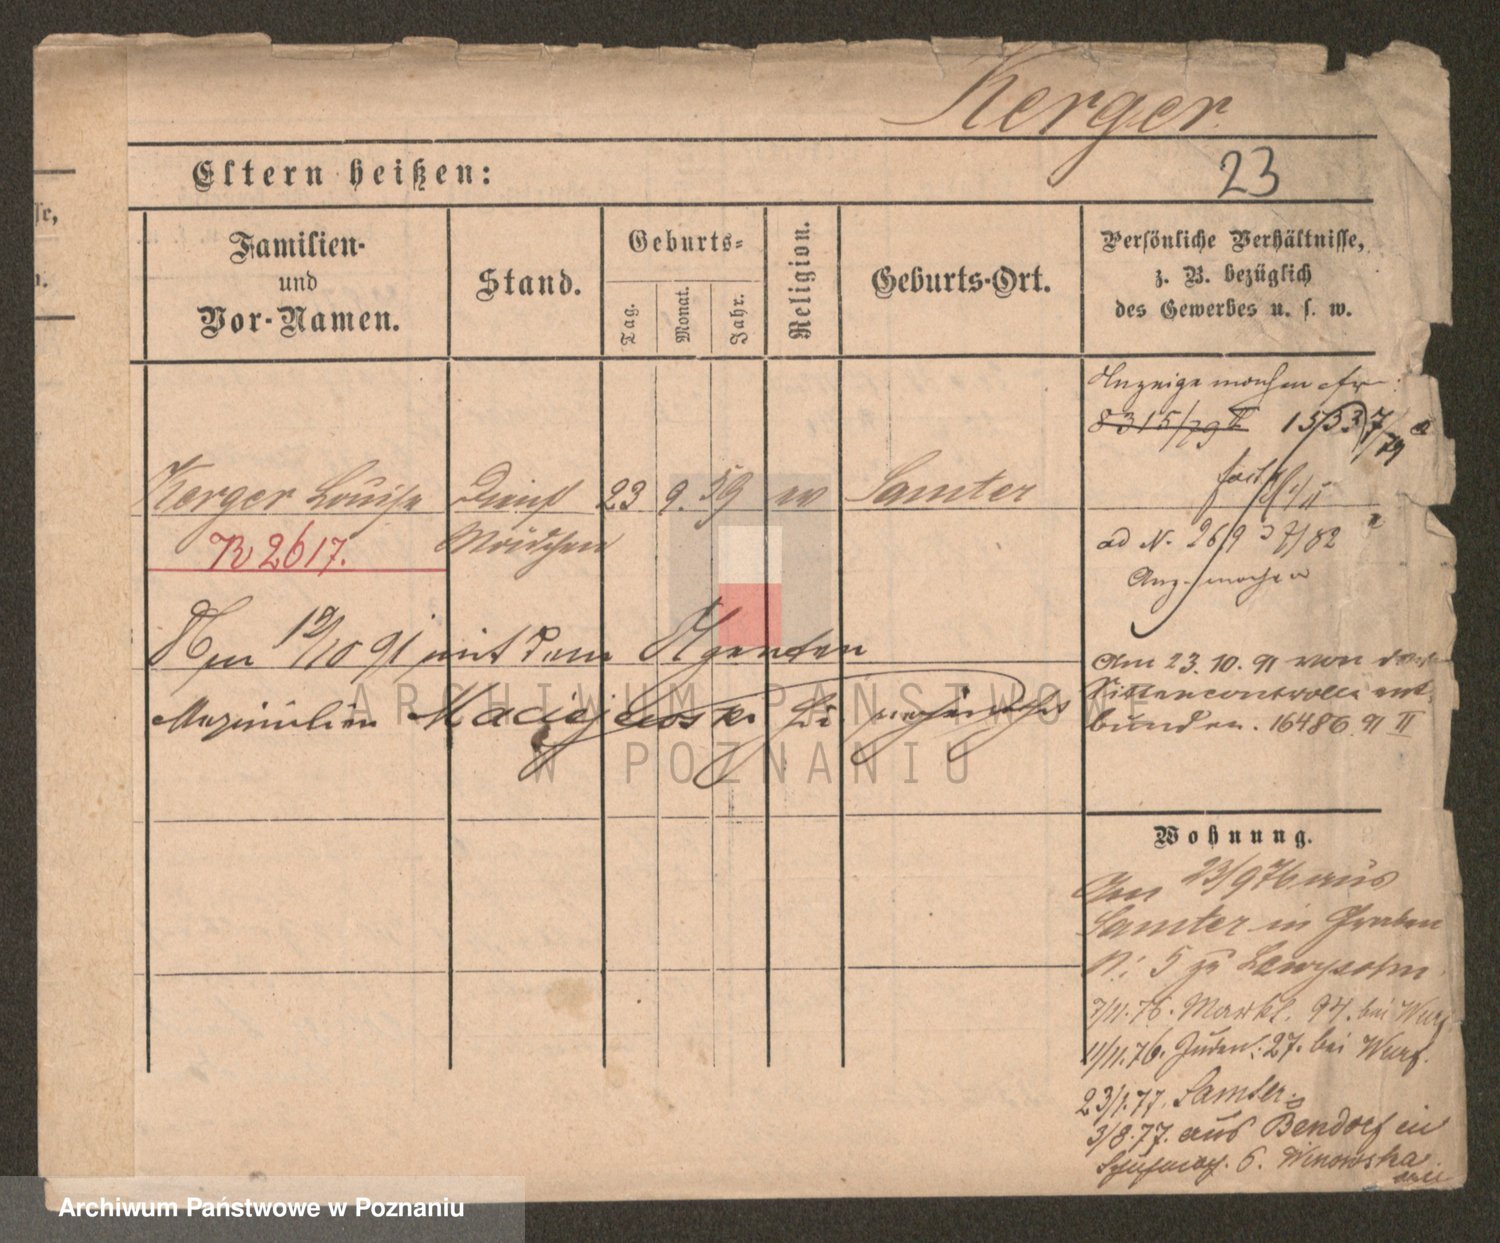 Kerger
23
Eltern heißen:
ſſe,
Familien-
und
Vor-Namen.
Stand.
Geburts-
Tag.
Monat.
Jahr.
Religion.
Geburts-Ort.
Persönliche Verhältnisse,
z. B. bezüglich
des Gewerbes u. s. w.
Anzeige machen
8315/79 II
Kerger Louise Dienst 23 9. 59 ev Samter
Mädchen
R 2617.
ad N.
7/82
Anz. machen
Am 10/10 91 mit dem Agenten
Maximilian Maciejewski
Am 23.10.91 von
Sittencontrolle ent-
bunden. 16486 91 II
Wohnung.
Am 23/9 76 aus
Samter in Graben
N: 5 zu Lewysohn
7/11.76. Markt. 94. bei
11/11.76. Juden: 27. bei
23/1.77. Samter
3/8.77. aus Bendorf in
6. Winowska
ARCHIWUM PAŃSTWOWE
W POZNANIU
Archiwum Państwowe w Poznaniu